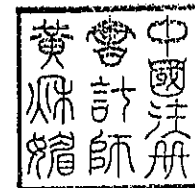 中國注册
會計師
黄秌媚